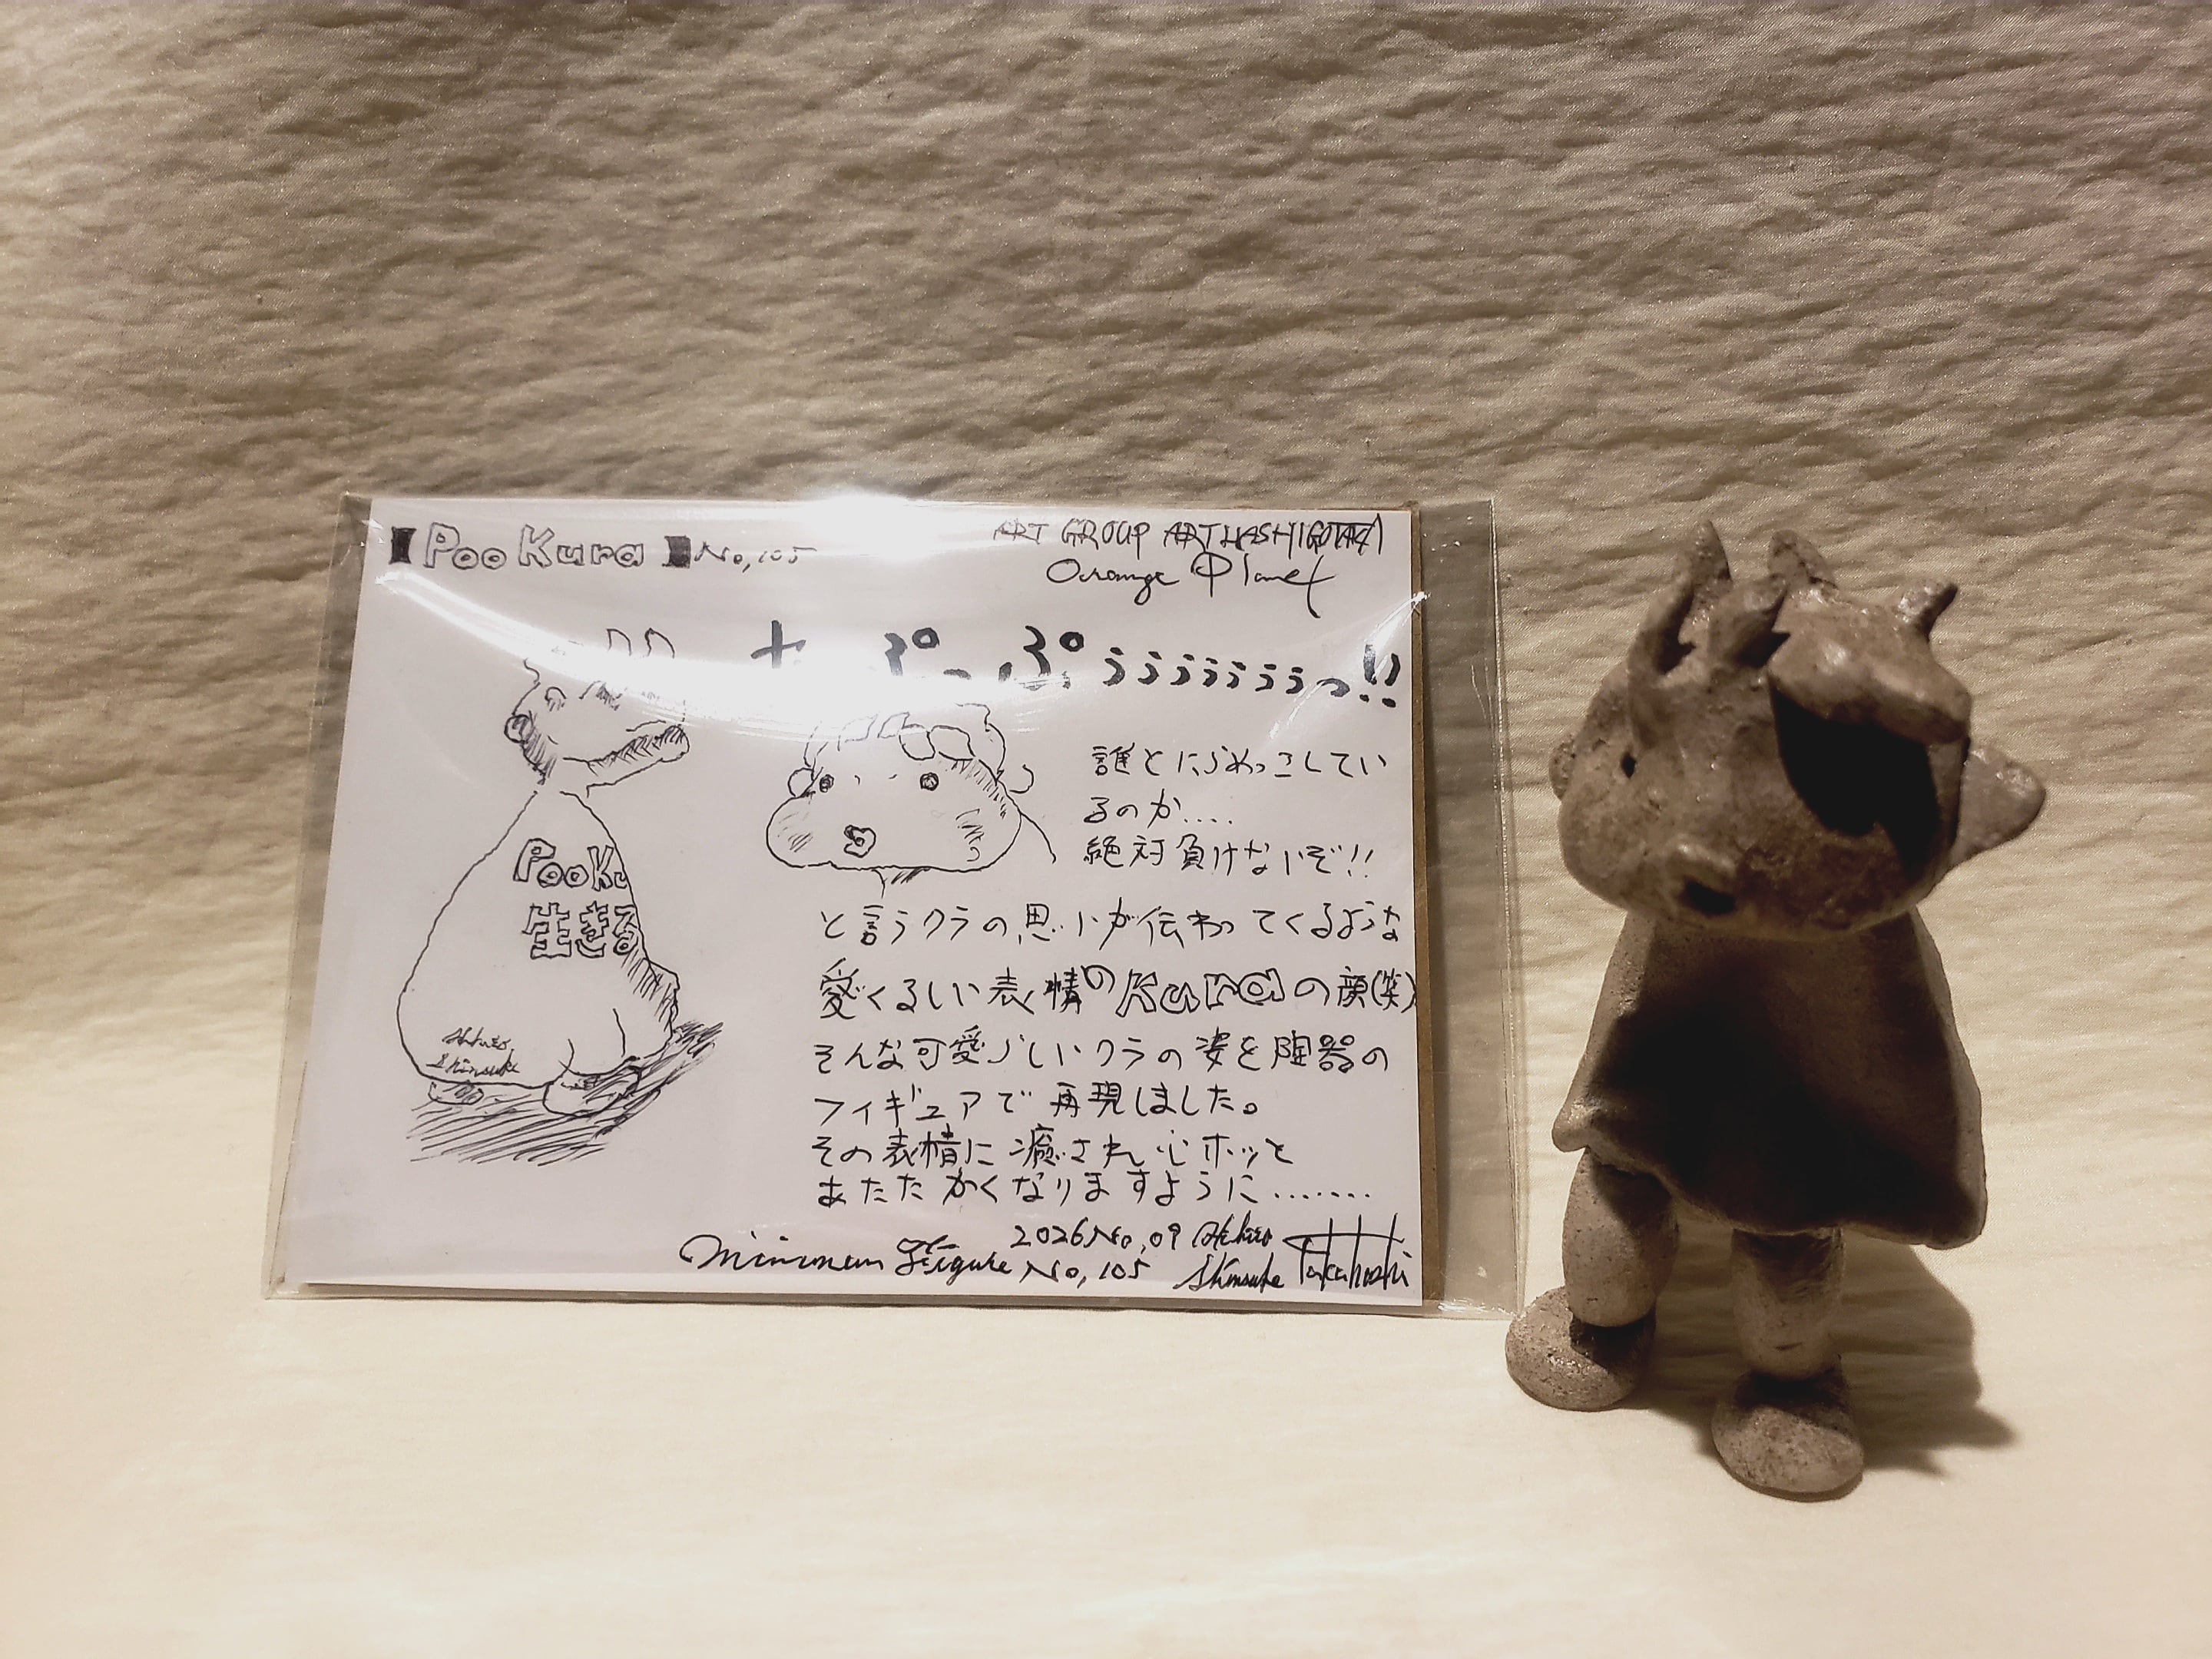 【Poo Kura】No,105
ART GROUP ARTHASHIGOTAKA
Orange Planet
ぷっぷぅぅぅぅぅぅぅっ!!
誰とにらめっこしてい
るのか....
絶対負けないぞ!!
と言うクラの思いが伝わってくるような
愛くるしい表情のKuraの顔(笑)
そんな可愛らしいクラの姿を陶器の
フィギュアで再現しました。
その表情に癒され心ホッと
あたたかくなりますように.......
PooKu
生きる
Shinsuke
2026 No,09 Akihiro
Minimum Figure No,105 Shinsuke Takahashi